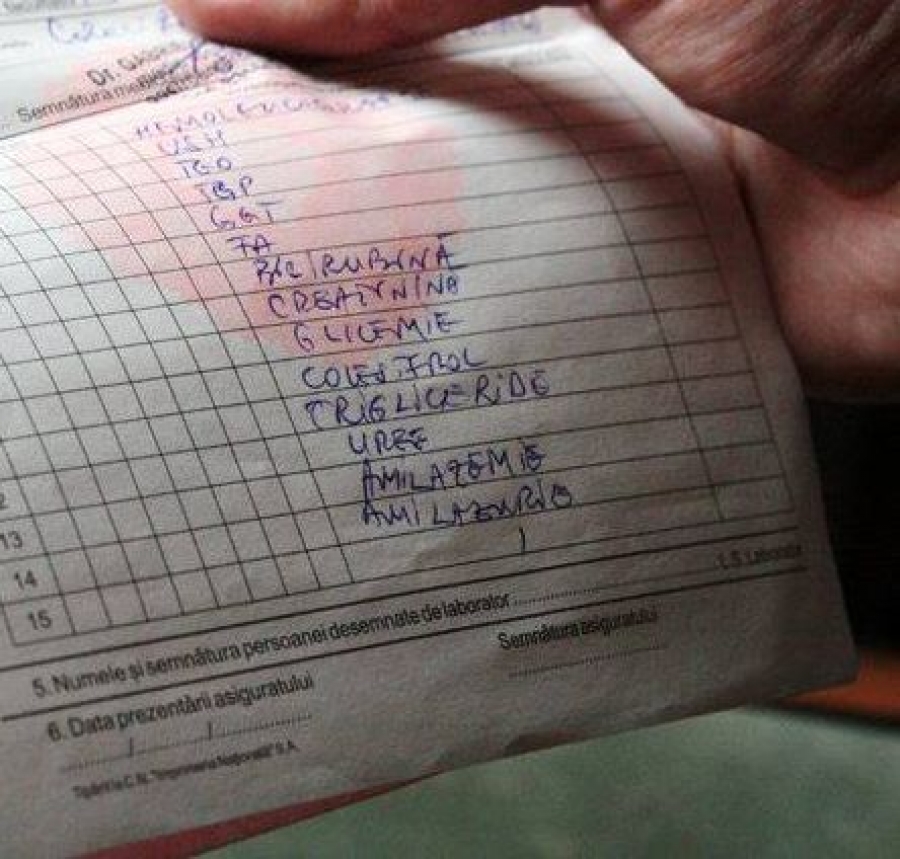 Dr.
Semnătura
HEMOLEUCOGRAMA
VSH
TGO
TGP
GGT
FA
BILIRUBINĂ
CREATININA
GLICEMIE
COLESTROL
TRIGLICERIDE
UREE
AMILAZEMIE
AMILAZURIE
13
14
15
L.S. Laborator
5. Numele și semnătura persoanei desemnate de laborator
Semnătura asiguratului
6. Data prezentării asiguratului
Tipărit la C.N. "Imprimeria Națională" S.A.